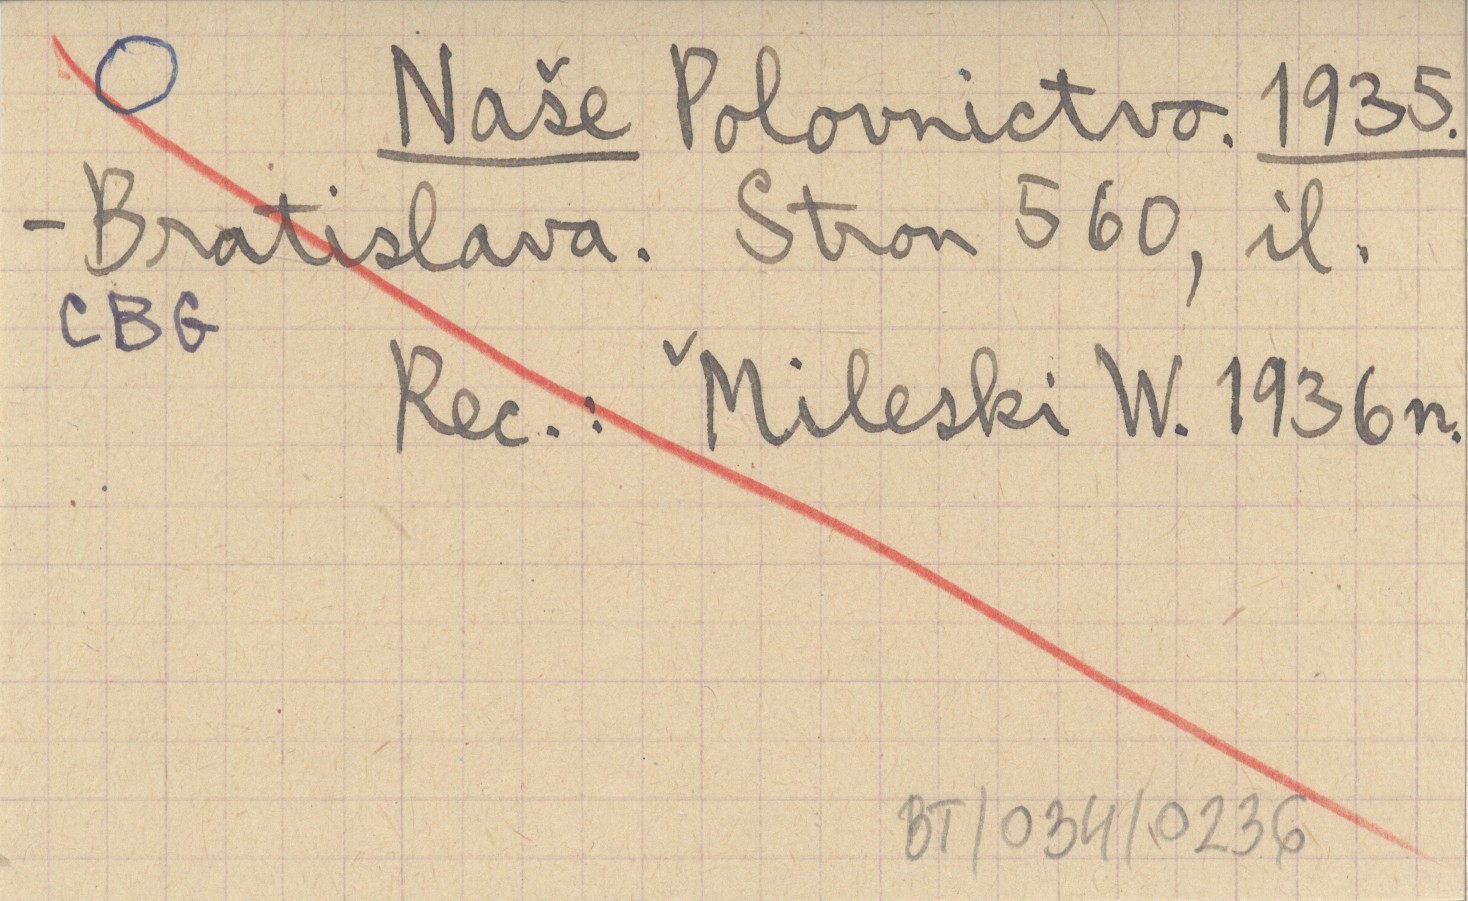 Naše Polovnictvo. 1935.
- Bratislava. Stron 560, il.
CBG
Rec.: ˇMileski W. 1936n.
BT/034/0236